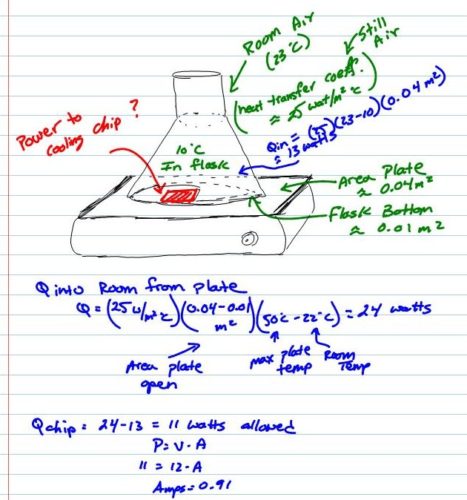 Room Air
(23°C)
Still
Air
(heat transfer coeff.
≈ 25 wat/m²°C)
Power to
cooling chip?
10°C
In flask
Qin = (25)(23-10)(0.04m²)
≈ 13 watts
Area Plate
≈ 0.04m²
Flask Bottom
≈ 0.01m²
Q into Room from plate
Q = (25 w/m²°C)(0.04-0.01 m²)(50°C-22°C) = 24 watts
Area plate
open
max plate
temp
Room
Temp
Qchip = 24-13 = 11 watts allowed
P = V·A
11 = 12·A
Amps = 0.91